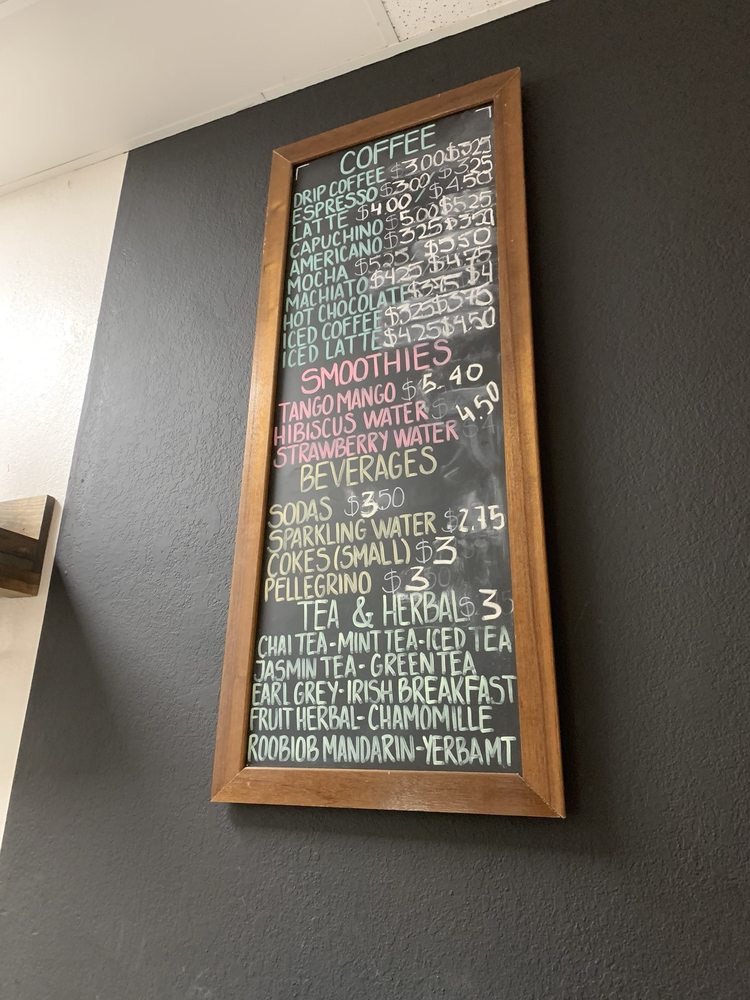 COFFEE
DRIP COFFEE $3.00 $3.25
ESPRESSO $3.00 / $3.25
LATTE $4.00 / $4.50
CAPUCHINO $5.00 $5.25
AMERICANO $3.25 $3.50
MOCHA $5.25 $5.50
MACHIATO $4.25 $4.75
HOT CHOCOLATE $3.75 $4
ICED COFFEE $3.25 $3.75
ICED LATTE $4.25 $4.50
SMOOTHIES
TANGO MANGO $5.40
HIBISCUS WATER 4.50
STRAWBERRY WATER
BEVERAGES
SODAS $3
SPARKLING WATER $2.75
COKES (SMALL) $3
PELLEGRINO $3
TEA & HERBAL $3
CHAI TEA-MINT TEA-ICED TEA
JASMIN TEA- GREEN TEA
EARL GREY-IRISH BREAKFAST
FRUIT HERBAL- CHAMOMILLE
ROOBIOB MANDARIN-YERBA MT